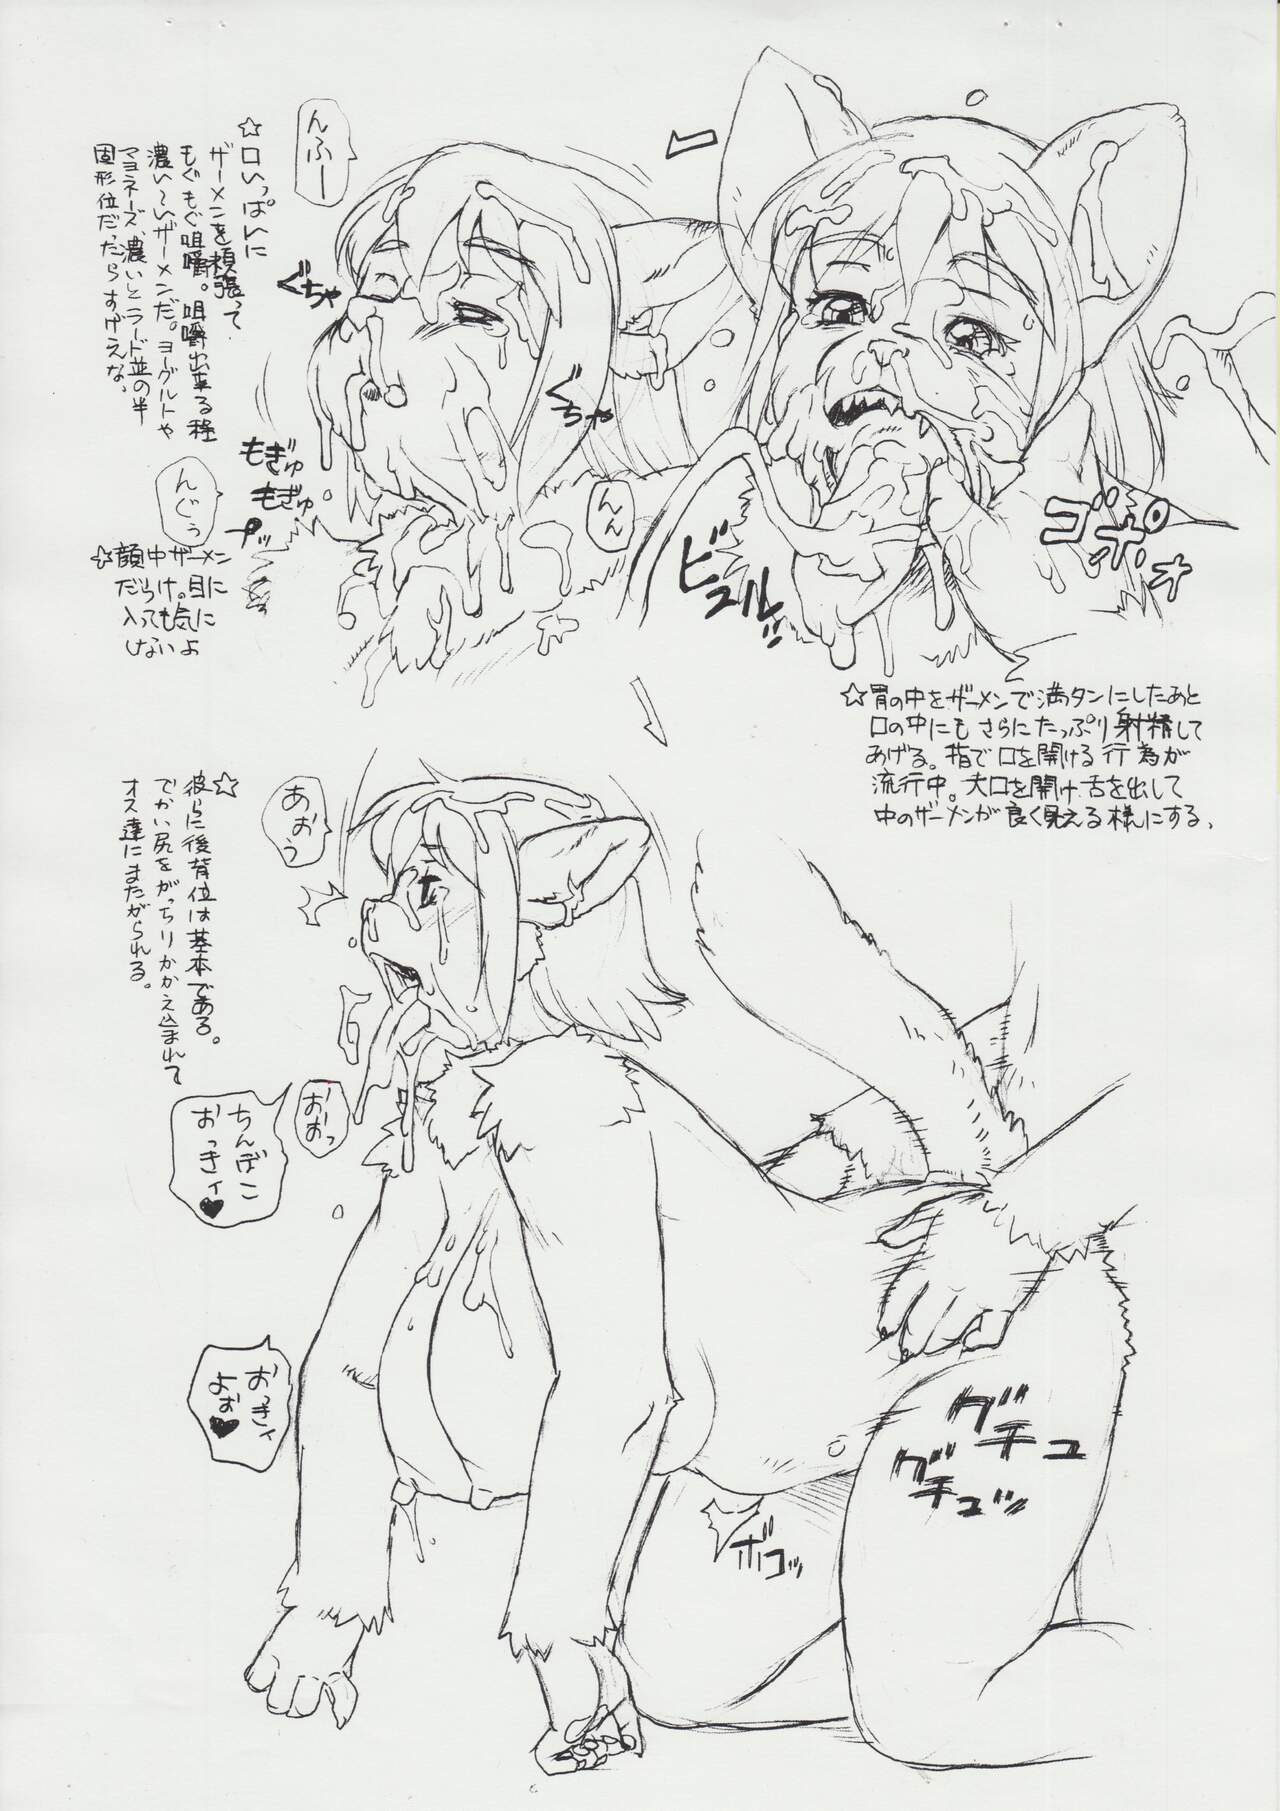 ☆口いっぱいに
ザーメンを頬張って
もぐもぐ咀嚼。咀嚼出来る程
濃い〜いザーメンだ。ヨーグルトや
マヨネーズ、濃いとラード並の半
固形位だったらすげえな。
んふー
ぐちゃ
ぐちゃ
もぎゅ
もぎゅ
プッ
んぐぅ
んん
☆顔中ザーメン
だらけ。目に
入っても気に
しないよ
ビュルルッ
ゴポォ
☆胃の中をザーメンで満タンにしたあと
口の中にもさらにたっぷり射精して
あげる。指で口を開ける行為が
流行中。大口を開け舌を出して
中のザーメンが良く見える様にする、
☆彼らに後背位は基本である。
でかい尻をがっちりかかえ込まれて
オス達にまたがられる。
あおぅ
おおっ
ちんぽこ
おっきィ♥
おっきィ
よぉ♥
グチュ
グチュッ
ボコッ